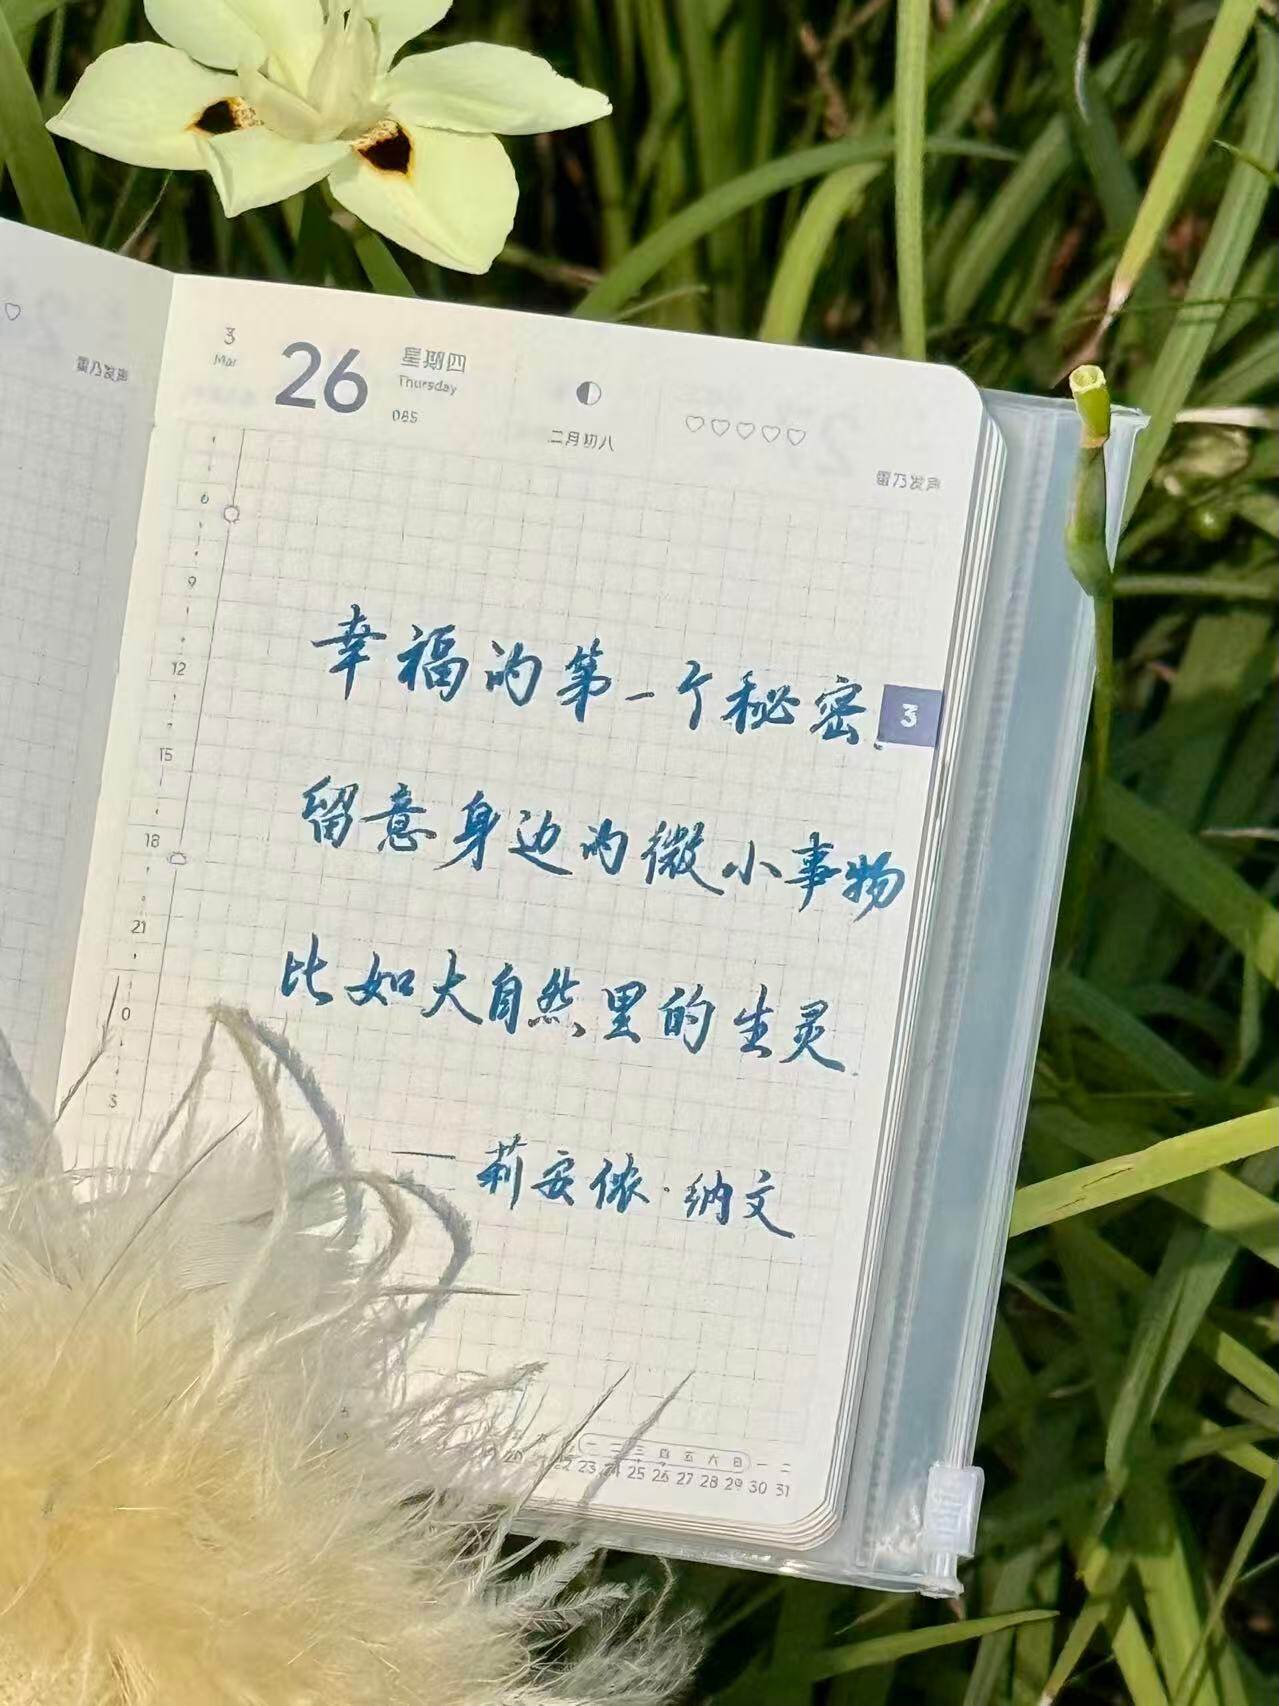 雷乃发声
3
Mar
26
星期四
Thursday
085
二月初八
雷乃发声
6
9
12
15
18
21
0
3
3
幸福的第一个秘密.
留意身边的微小事物
比如大自然里的生灵.
——莉安侬·纳文
一 二 三 四 五 六 日 一 二
20 22 23 24 25 26 27 28 29 30 31